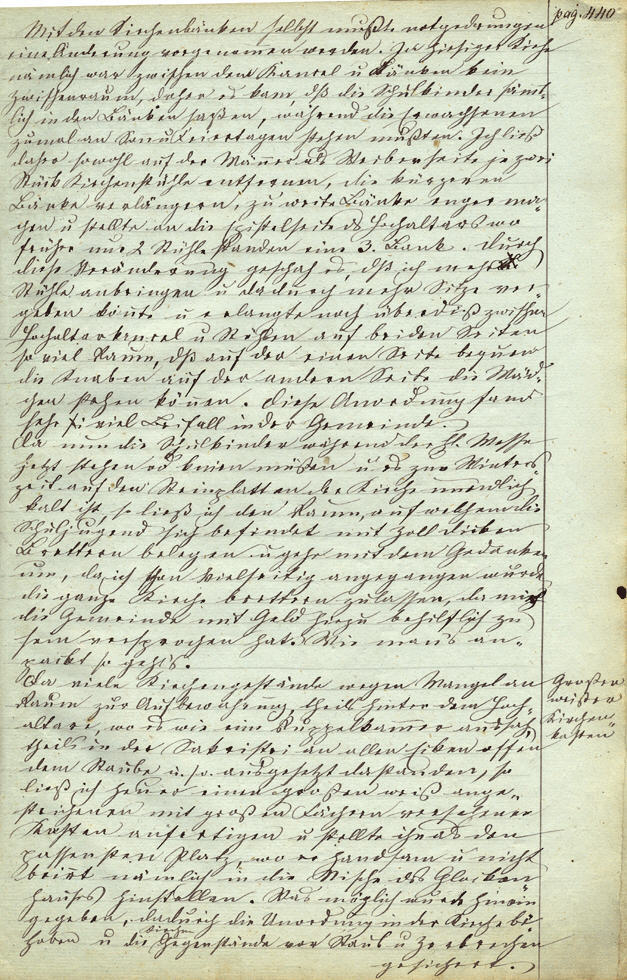 pag. 440
Mit den Kirchenbänken selbst mußte notgedrungen
eine Änderung vorgenomen werden. In hiesiger Kirche
nämlich war zwischen dem Kancel u Bänken kein
Zwischenraum, daher es kam, dß die Schulkinder sämt-
lich in den Bänken saßen, während die Erwachsenen
zumal an Son u Feiertagen stehen mußten. Ich ließ
daher sowohl auf der Männer als Weiberseite je zwei
Stük Kirchenstühle entfernen, die kürzeren
Bänke verlängern, zu weite Bänke enger ma-
chen u stellte an die Epistelseite ds Hochaltars wo
früher nur 2 Stühle standen eine 3. Bank. Durch
diese Veränderung geschah es, dß ich mehr
Stühle anbringen u dadurch mehr Sitze ver-
geben könte u erlangte noch überdiß zwischen
Hochaltar kancel u Stühlen auf beiden Seiten
so viel Raum, dß auf der einen Seite bequem
die Knaben auf der andern Seite die Mäd-
chen stehen können. Diese Anordnung fand
sehr viel Beifall in der Gemeinde.
Da nun die Schulkinder während der hl. Messe
jetzt stehen od knien müßen u es zur Winters-
zeit auf den Steinplatten der Kirche unendlich
kalt ist, so ließ ich den Raum, auf welchem die
Schuljugend sich befindet mit zolldicken
Brettern belegen u gehe mit dem Gedanken
um, da ich schon vielseitig angegangen wurde
die ganze Kirche brettern zu lassen, da mir
die Gemeinde mit Geld hiezu behilflich zu
sein versprochen hat. Wie mans an-
packt so geht's.
Da viele Kirchengestände wegen Mangel an
Raum zur Aufbewahrung, theils hinter dem Hoch-
altare, wo es wie eine Ruppelkammer aussah,
theils in der Sakristei an allen Eken offen
dem Staube u. s. w. ausgesetzt dastanden, so
ließ ich heuer einen großen weiß ange-
strichenen mit großen Fächern versehenen
Kasten anfertigen u stellte ihn an den
passensten Platz, wo er handsam u nicht
beirt nämlich in die Nische des Gloken
hauses hinstellen. Was möglich wurde hinein
gegeben, dadurch die Unordnung in der Kirche be-
hoben u die Kirchen Gegenstände vor Staub u Zerbrechen
gesichert.
Großer
weißer
Kirchen-
kasten